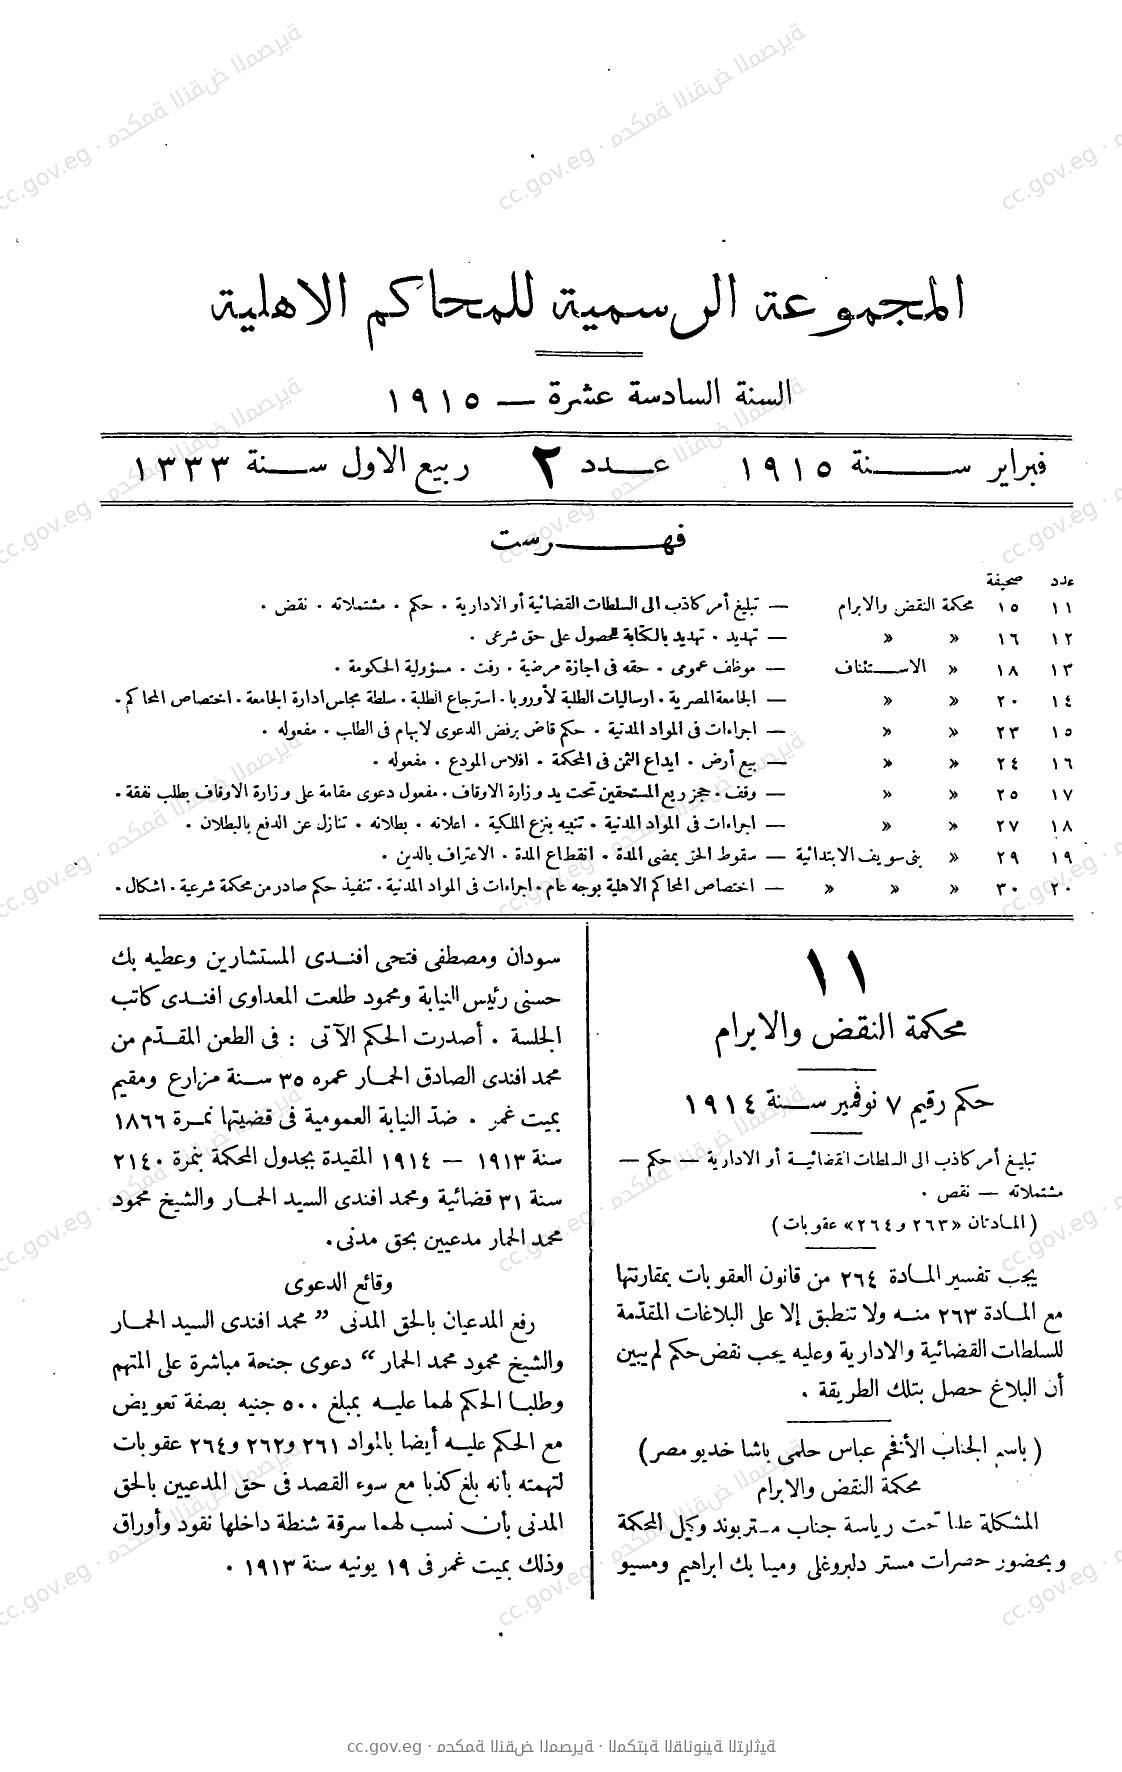 المجموعة الرسمية للمحاكم الاهلية
السنة السادسة عشرة — ١٩١٥
فبراير سنة ١٩١٥ عدد ٢ ربيع الاول سنة ١٣٣٣
فهرست
عدد صحيفة
١١ ١٥ محكمة النقض والابرام — تبليغ أمر كاذب الى السلطات القضائية أو الادارية . حكم . مشتملاته . نقض .
١٢ ١٦ « « — تهديد . تهديد بالكتابة للحصول على حق شرعى .
١٣ ١٨ « الاستئناف — موظف عمومى . حقه فى اجازة مرضية . رفت . مسؤولية الحكومة .
١٤ ٢٠ « « — الجامعة المصرية . ارساليات الطلبة لأوروبا . استرجاع الطلبة . سلطة مجلس ادارة الجامعة . اختصاص المحاكم .
١٥ ٢٣ « « — اجراءات فى المواد المدنية . حكم قاض برفض الدعوى لابهام فى الطلب . مفعوله .
١٦ ٢٤ « « — بيع أرض . ايداع الثمن فى المحكمة . افلاس المودع . مفعوله .
١٧ ٢٥ « « — وقف . حجز ريع المستحقين تحت يد وزارة الاوقاف . مفعول دعوى مقامة على وزارة الاوقاف بطلب نفقة .
١٨ ٢٧ « « — اجراءات فى المواد المدنية . تنبيه بنزع الملكية . اعلانه . بطلانه . تنازل عن الدفع بالبطلان .
١٩ ٢٩ « بنى سويف الابتدائية — سقوط الحق بمضى المدة . انقطاع المدة . الاعتراف بالدين .
٢٠ ٣٠ « « « — اختصاص المحاكم الاهلية بوجه عام . اجراءات فى المواد المدنية . تنفيذ حكم صادر من محكمة شرعية . اشكال .
١١
محكمة النقض والابرام
حكم رقيم ٧ نوفمبر سنة ١٩١٤
تبليغ أمر كاذب الى السلطات القضائية أو الادارية — حكم —
مشتملاته — نقض .
(المادتان «٢٦٣ و٢٦٤» عقوبات)
يجب تفسير المادة ٢٦٤ من قانون العقوبات بمقارنتها
مع المادة ٢٦٣ منه ولا تنطبق إلا على البلاغات المقدّمة
للسلطات القضائية والادارية وعليه يجب نقض حكم لم يبين
أن البلاغ حصل بتلك الطريقة .
(باسم الجناب الأفخم عباس حلمى باشا خديو مصر)
محكمة النقض والابرام
المشكلة علنا تحت رياسة جناب مستر بوند وكيل المحكمة
وبحضور حضرات مستر دلبروغلى ومينا بك ابراهيم ومسيو
سودان ومصطفى فتحى افندى المستشارين وعطيه بك
حسنى رئيس النيابة ومحمود طلعت المعداوى افندى كاتب
الجلسة . أصدرت الحكم الآتى : فى الطعن المقدّم من
محمد افندى الصادق الحمار عمره ٣٥ سنة مزارع ومقيم
بميت غمر . ضدّ النيابة العمومية فى قضيتها نمرة ١٨٦٦
سنة ١٩١٣ — ١٩١٤ المقيدة بجدول المحكمة بنمرة ٢١٤٠
سنة ٣١ قضائية ومحمد افندى السيد الحمار والشيخ محمود
محمد الحمار مدعيين بحق مدنى.
وقائع الدعوى
رفع المدعيان بالحق المدنى ” محمد افندى السيد الحمار
والشيخ محمود محمد الحمار “ دعوى جنحة مباشرة على المتهم
وطلبا الحكم لهما عليه بمبلغ ٥٠٠ جنيه بصفة تعويض
مع الحكم عليه أيضا بالمواد ٢٦١ و٢٦٢ و٢٦٤ عقوبات
لتهمته بأنه بلغ كذبا مع سوء القصد فى حق المدعيين بالحق
المدنى بأن نسب لهما سرقة شنطة داخلها نقود وأوراق
وذلك بميت غمر فى ١٩ يونيه سنة ١٩١٣ .
cc.gov.eg · محكمة النقض المصرية · المكتبة القانونية التراثية